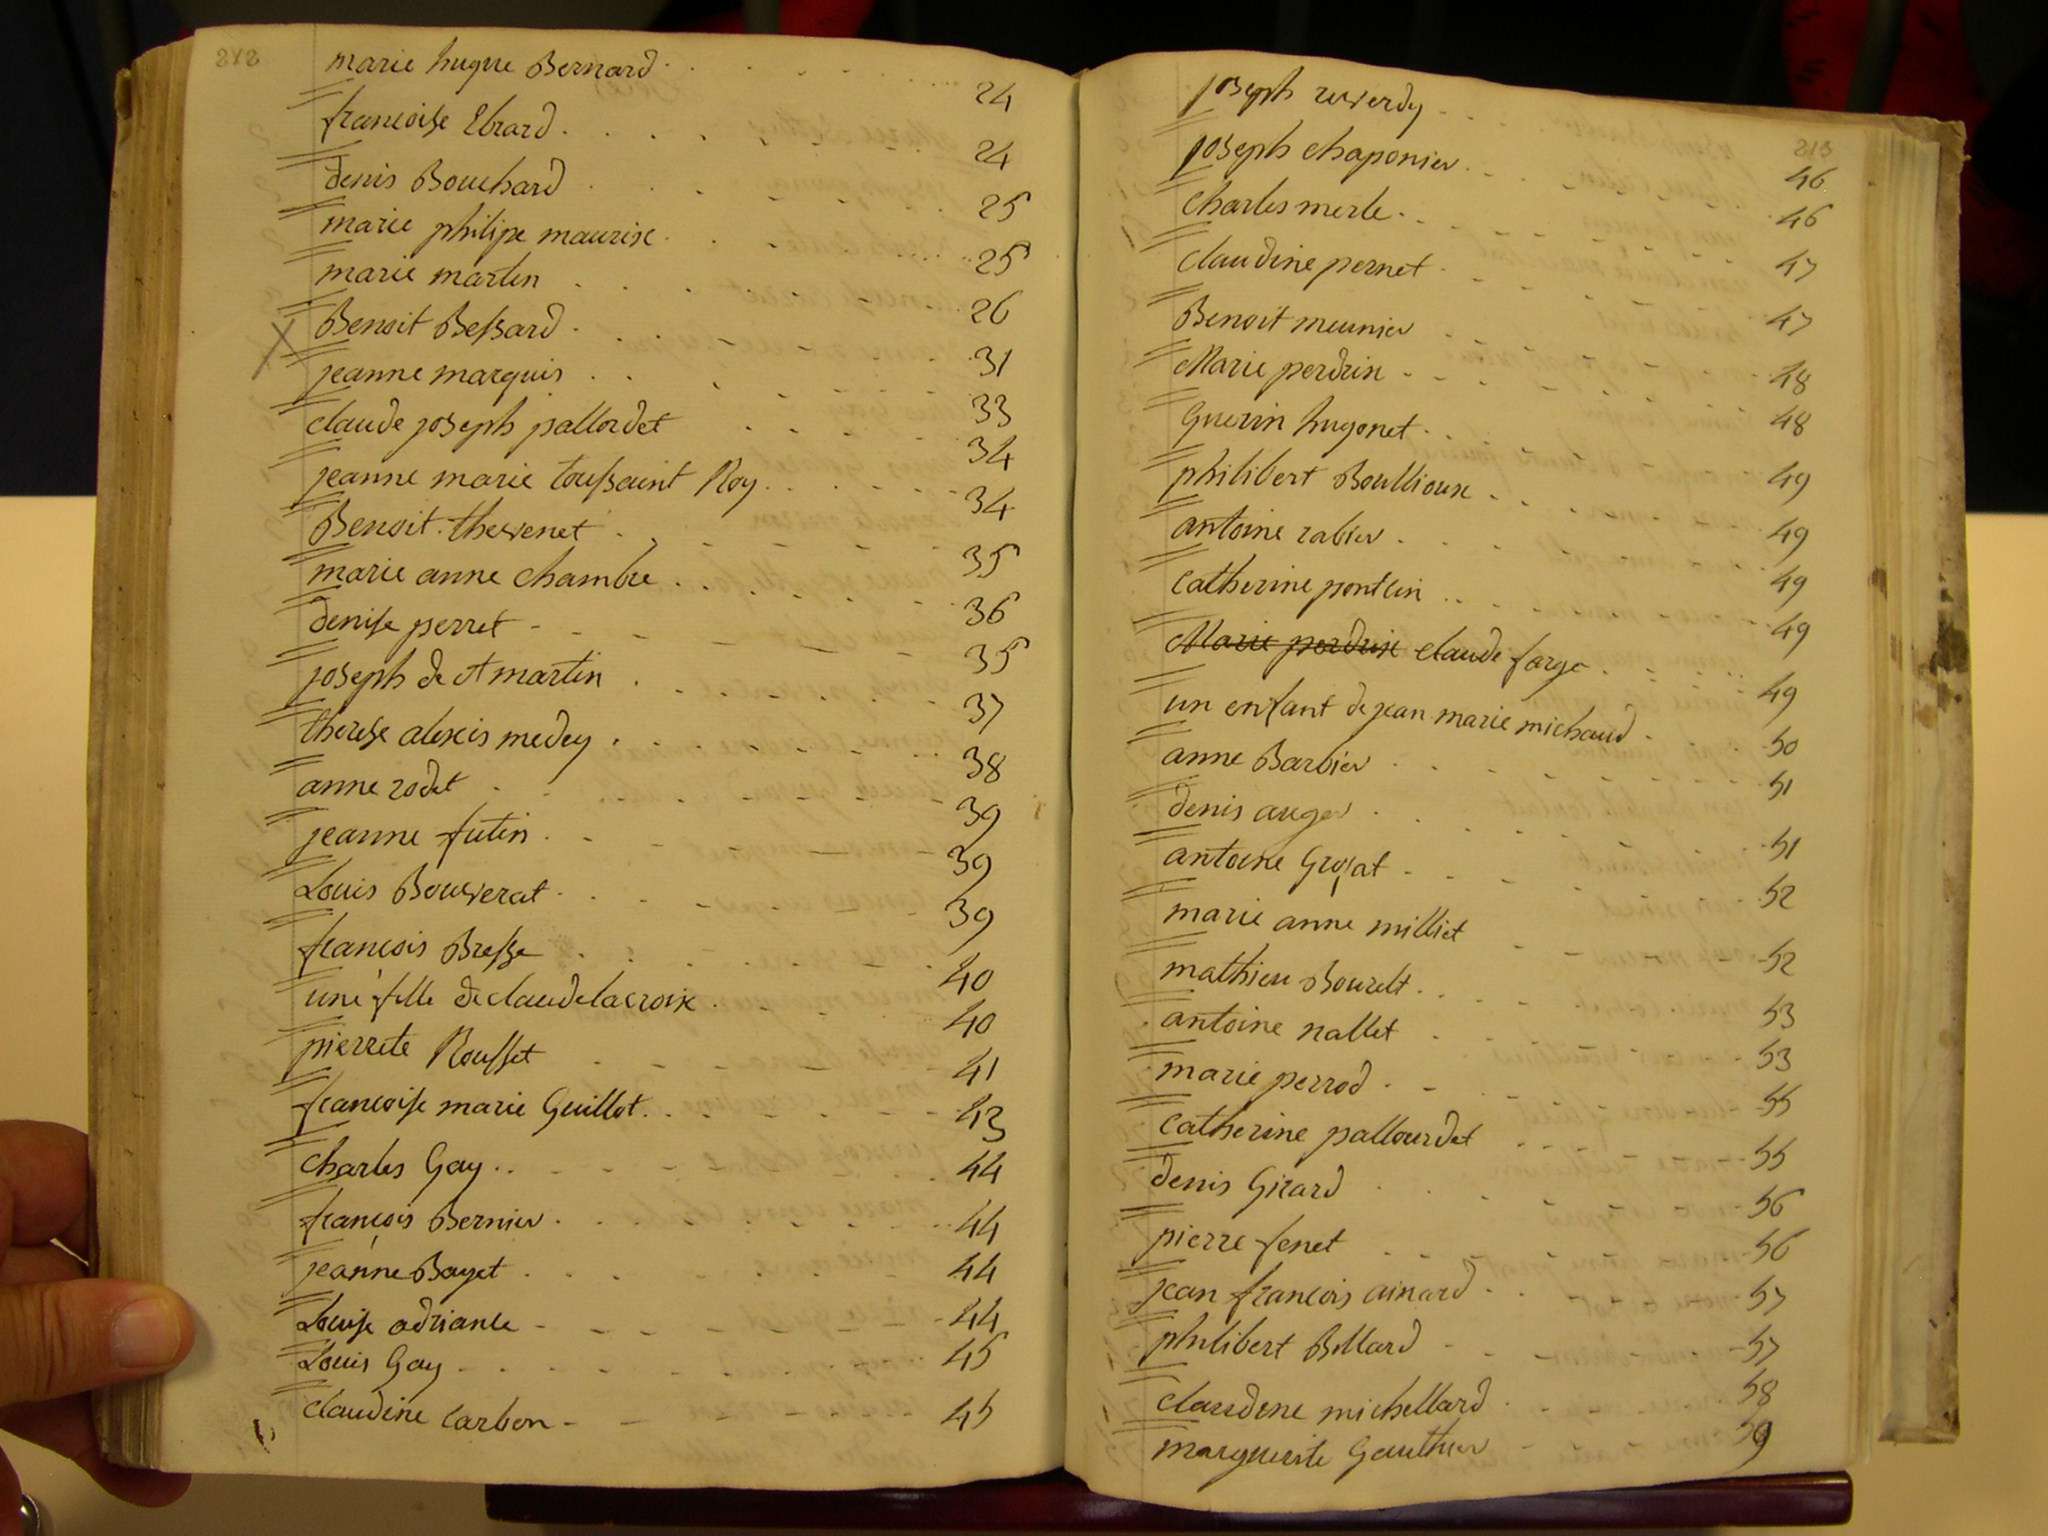 212
marie hugue Bernard 24
francoise Ebrard 24
denis Bouchard 25
marie philipe maurix 25
marie martin 26
Benoit Bessard 31
jeanne marquis 33
claude joseph pallordet 34
jeanne marie toussaint Roy 34
Benoit thevenet 35
marie anne chambre 36
denise perret 35
joseph de st martin 37
therese alexis medey 38
anne rodet 39
jeanne futin 39
Louis Bouverat 39
francois Bresse 40
une fille de claude lacroix 40
pierrete Rousset 41
francoise marie Guillot 43
charles Gay 44
françois Bernier 44
jeanne Bayet 44
Louise adriance 44
Louis Gay 45
claudine carbon 45
213
joseph ruverdy 46
joseph chaponier 46
charles merle 47
claudine pernet 47
Benoit meunier 48
Marie perdrix 48
Guerin hugonet 49
philibert Boullioux 49
antoine rabier 49
catherine pontcin 49
Marie perdrix claude farge 49
un enfant de jean marie michaud 50
anne Barbier 51
denis auger 51
antoine Grojat 52
marie anne milliet 52
mathieu Bourelt 53
antoine nallet 53
marie perrod 55
catherine pallourdet 55
denis Girard 56
pierre fenet 56
jean francois ainard 57
philibert Billard 57
claudine michellard 58
marguerite Gauthier 59